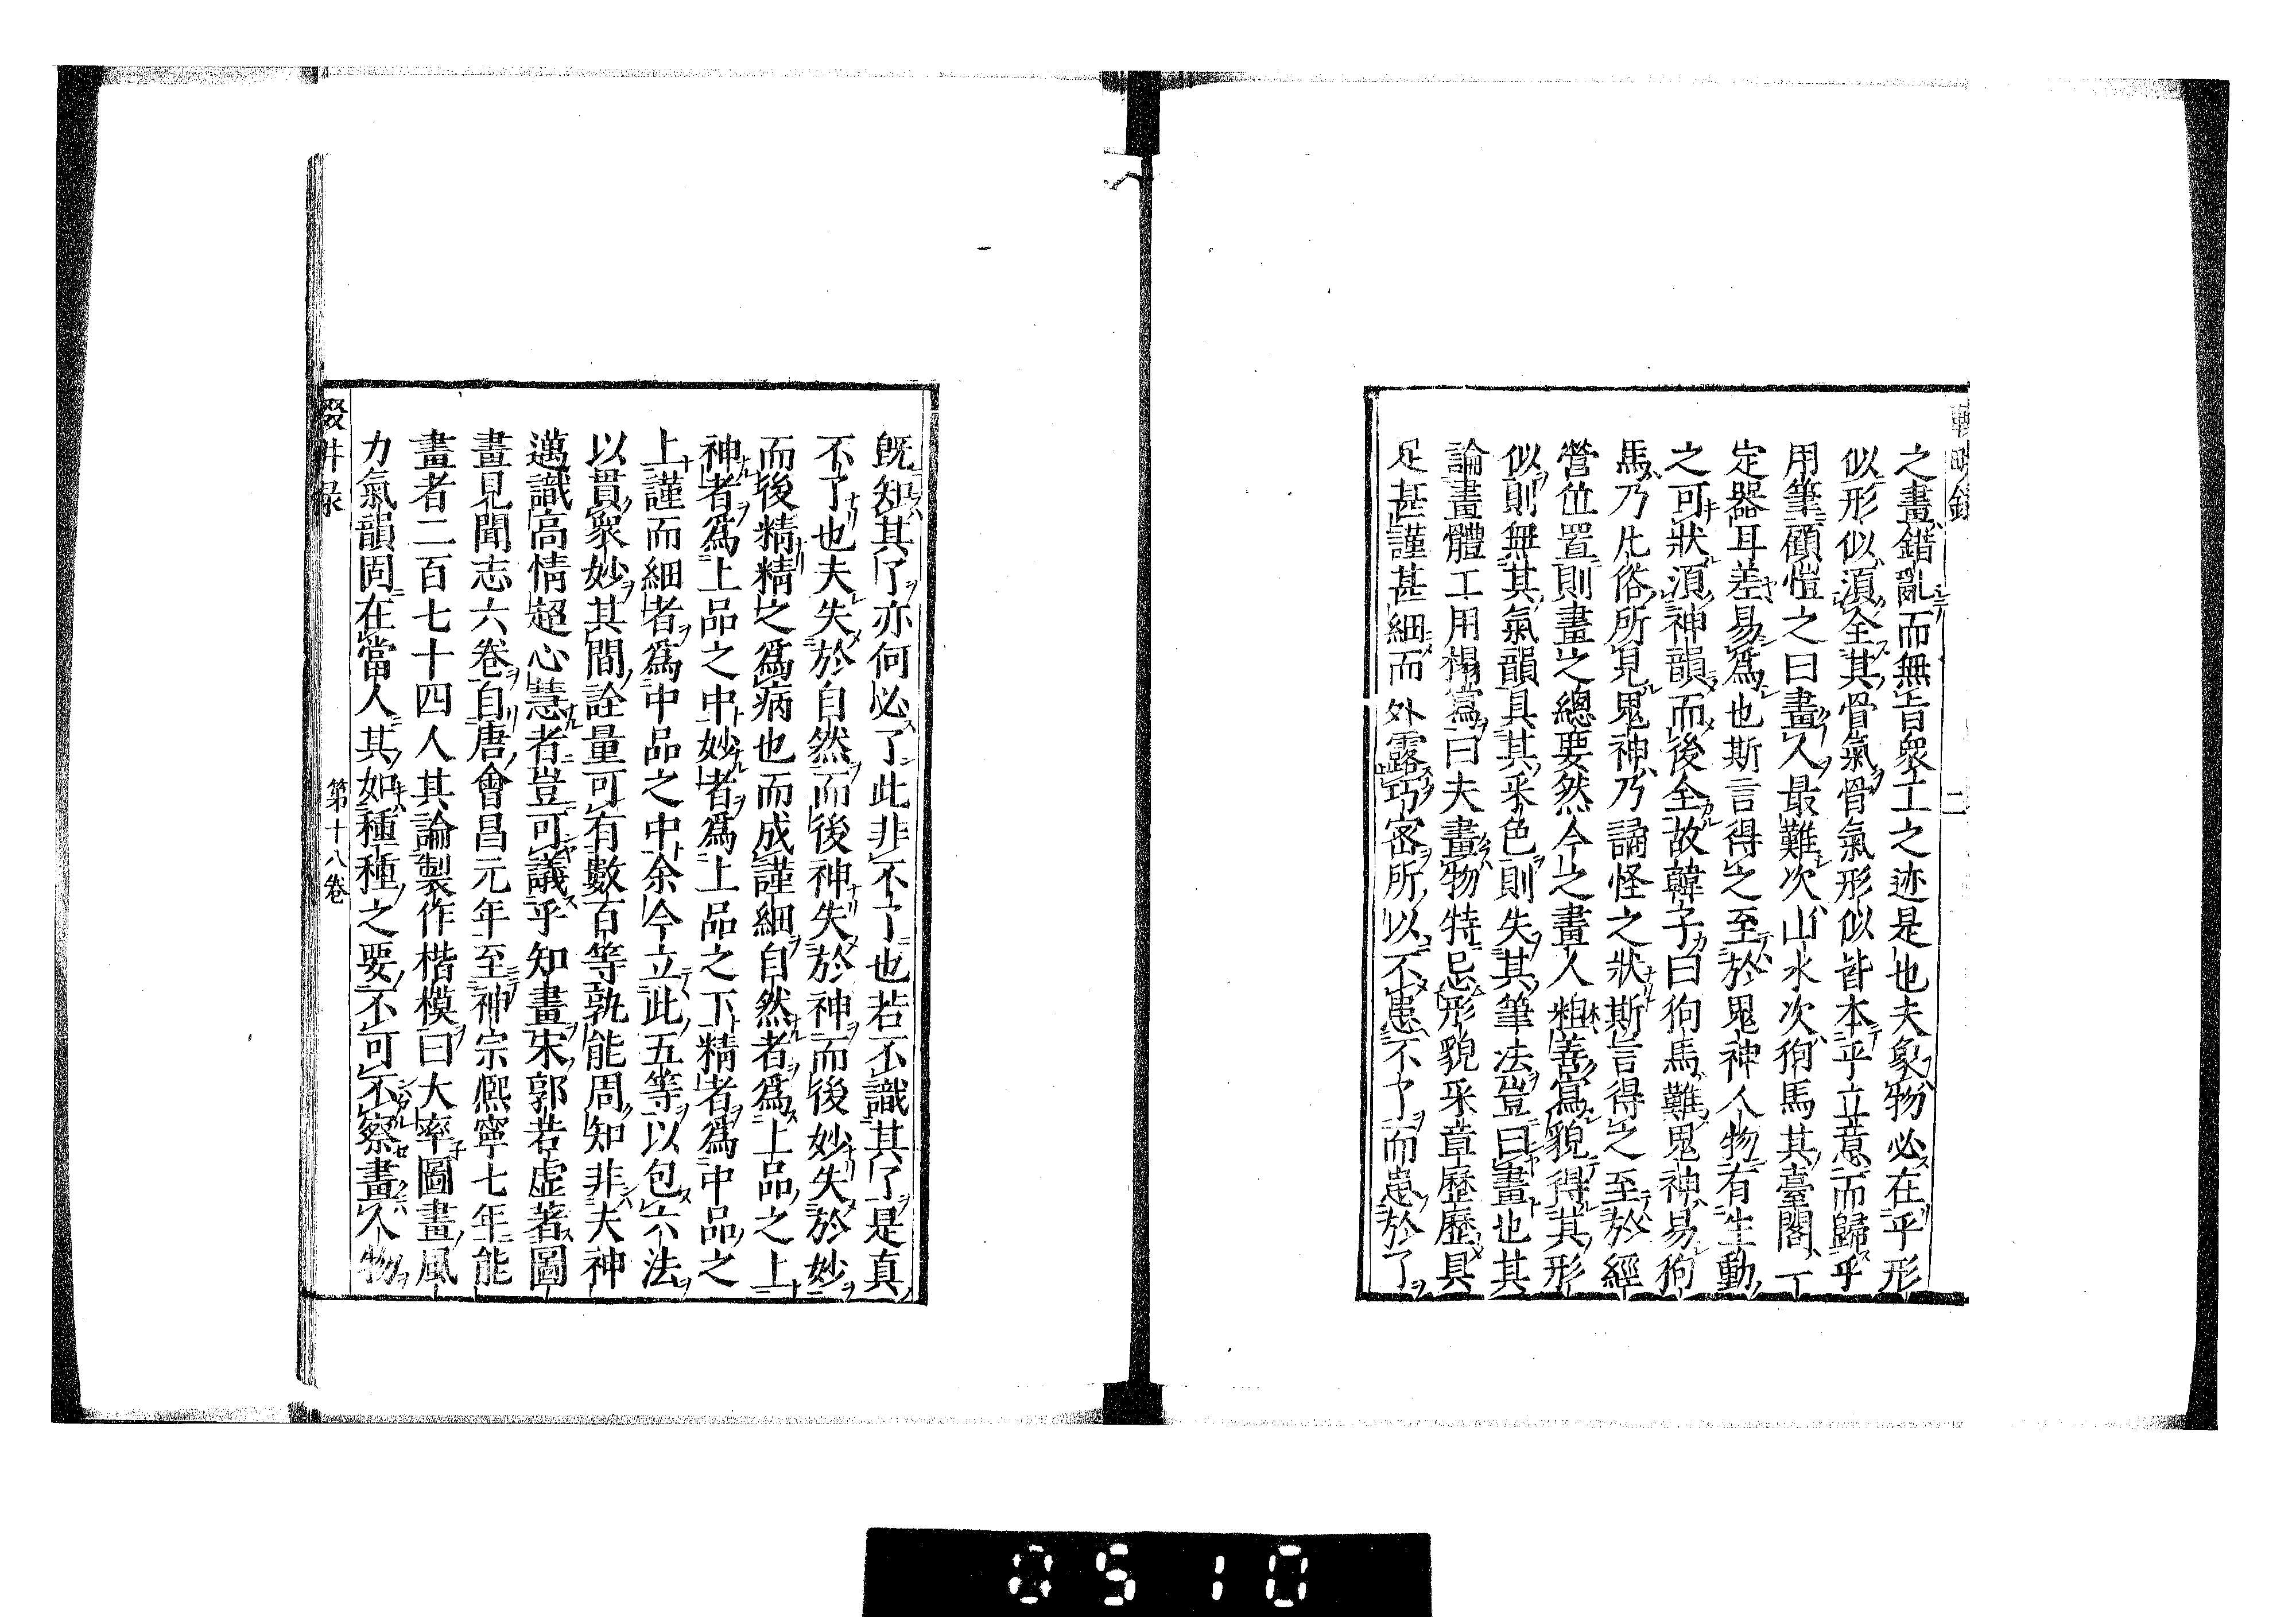 之畫錯亂而無旨衆工之迹是也夫象物必在乎形
似形似須全其骨氣骨氣形似皆本乎立意而歸乎
用筆顧愷之曰畫人最難次山水次狗馬其臺閣一
定器耳差易爲也斯言得之至於鬼神人物有生動
之可狀須神韻而後全故韓子曰狗馬難鬼神易狗
馬乃凡俗所見鬼神乃譎怪之狀斯言得之至於經
營位置則畫之總要然今之畫人粗善寫貌得其形
似則無其氣韻具其采色則失其筆法豈曰畫也其
論畫體工用榻寫曰夫畫物特忌形貌采章歷歷具
足甚謹甚細而外露巧密所以不患不了而患於了
二
既知其了亦何必了此非不了也若不識其了是真
不了也夫失於自然而後神失於神而後妙失於妙
而後精精之爲病也而成謹細自然者爲上品之上
神者爲上品之中妙者爲上品之下精者爲中品之
上謹而細者爲中品之中余今立此五等以包六法
以貫衆妙其間詮量可有數百等孰能周知非夫神
邁識高情超心慧者豈可議乎知畫宋郭若虛著圖
畫見聞志六卷自唐會昌元年至神宗熈寧七年能
畫者二百七十四人其論製作楷模曰大率圖畫風
力氣韻固在當人其如種種之要不可不察畫人物
輟耕录
第十八卷